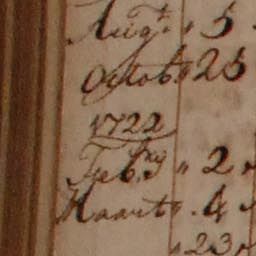 Augt. " 5
Octob. " 25
1722
Feb.ry " 2 "
Maart " 4 "
" 23 "